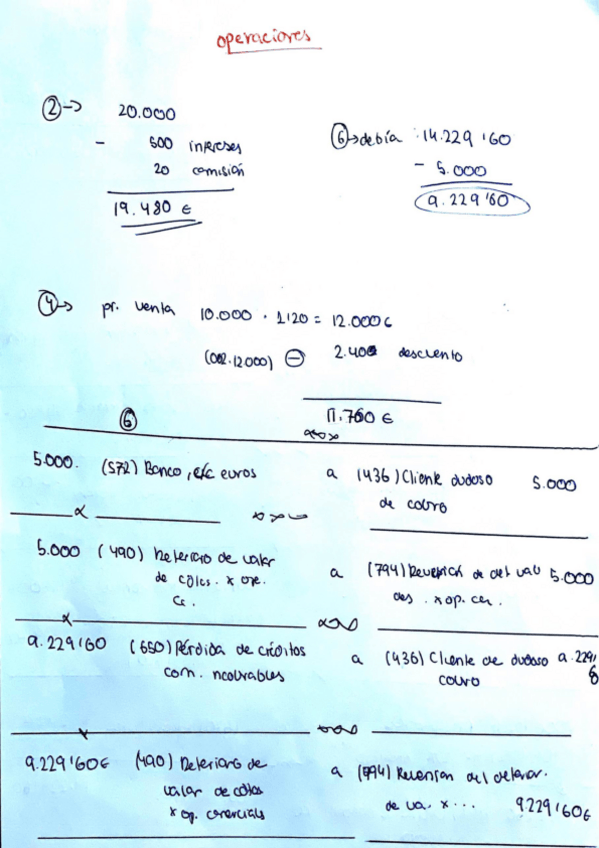 operaciones
②→ 20.000
- 500 intereses
20 comisión
19.480 €
⑥→ debía 14.229'60
- 5.000
9.229'60
④→ pr. venta 10.000 · 1'20 = 12.000€
(0'02·12000) ⊖ 2.400 descuento
11.760 €
⑥
5.000. (572) Banco, e/c euros a (436) Cliente dudoso 5.000
de cobro
5.000 (490) Deterioro de valor a (794) Reversión de det valo 5.000
de cdtos. x ope. des. x op. cer.
Cs.
9.229'60 (650) Pérdida de créditos a (436) Cliente de dudoso 9.229'
com. incobrables cobro 6
9.229'60€ (490) Deterioro de a (794) Reversion del deterior.
valor de cdtos de va. x ... 9229'60€
x op. comercials